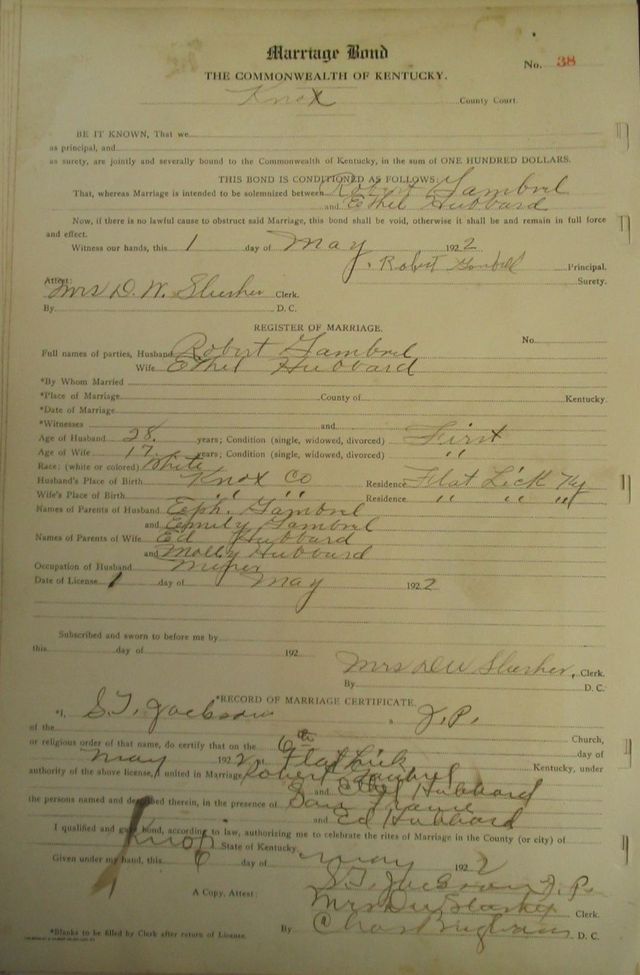 Marriage Bond
No. 38
THE COMMONWEALTH OF KENTUCKY.
Knox County Court.
BE IT KNOWN, That we
as principal, and
as surety, are jointly and severally bound to the Commonwealth of Kentucky, in the sum of ONE HUNDRED DOLLARS.
THIS BOND IS CONDITIONED AS FOLLOWS:
That, whereas Marriage is intended to be solemnized between Robert Gambrel
and Ethel Hubbard
Now, if there is no lawful cause to obstruct said Marriage, this bond shall be void, otherwise it shall be and remain in full force
and effect.
Witness our hands, this 1 day of May 1922
Robert Gambrell Principal.
Surety.
Attest:
Mrs D. W. Slusher Clerk.
By D. C.
REGISTER OF MARRIAGE.
No.
Full names of parties, Husband Robert Gambrel
Wife Ethel Hubbard
*By Whom Married
*Place of Marriage County of Kentucky.
*Date of Marriage
*Witnesses and
Age of Husband 28. years; Condition (single, widowed, divorced) First
Age of Wife 17. years; Condition (single, widowed, divorced) " "
Race: (white or colored) White
Husband's Place of Birth Knox Co Residence Flat Lick Ky
Wife's Place of Birth " " " " Residence " " " " "
Names of Parents of Husband Eph. Gambrel
and Emily Gambrel
Names of Parents of Wife Ed Hubbard
and Molly Hubbard
Occupation of Husband Miner
Date of License 1 day of May 1922
Subscribed and sworn to before me by
this day of 192
Mrs D W Slusher, Clerk.
By D. C.
*RECORD OF MARRIAGE CERTIFICATE.
*I, S. T. Jackson, J. P.
of the Church,
or religious order of that name, do certify that on the 6th day of
May 1922 Flat Lick Kentucky, under
authority of the above license, I united in Marriage Robert Gambrel
and Ethel Hubbard
the persons named and described therein, in the presence of
and Ed Hubbard
I qualified and gave bond, according to law, authorizing me to celebrate the rites of Marriage in the County (or city) of
Knox State of Kentucky.
Given under my hand, this 6 day of May 1922
S. T. Jackson J. P.
A Copy, Attest: Mrs D W Slusher Clerk.
By D. C.
*Blanks to be filled by Clerk after return of License.